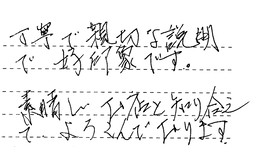 丁寧で親切な説明
で好印象です。
素晴しい仏石と知り合え
てよろこんでおります